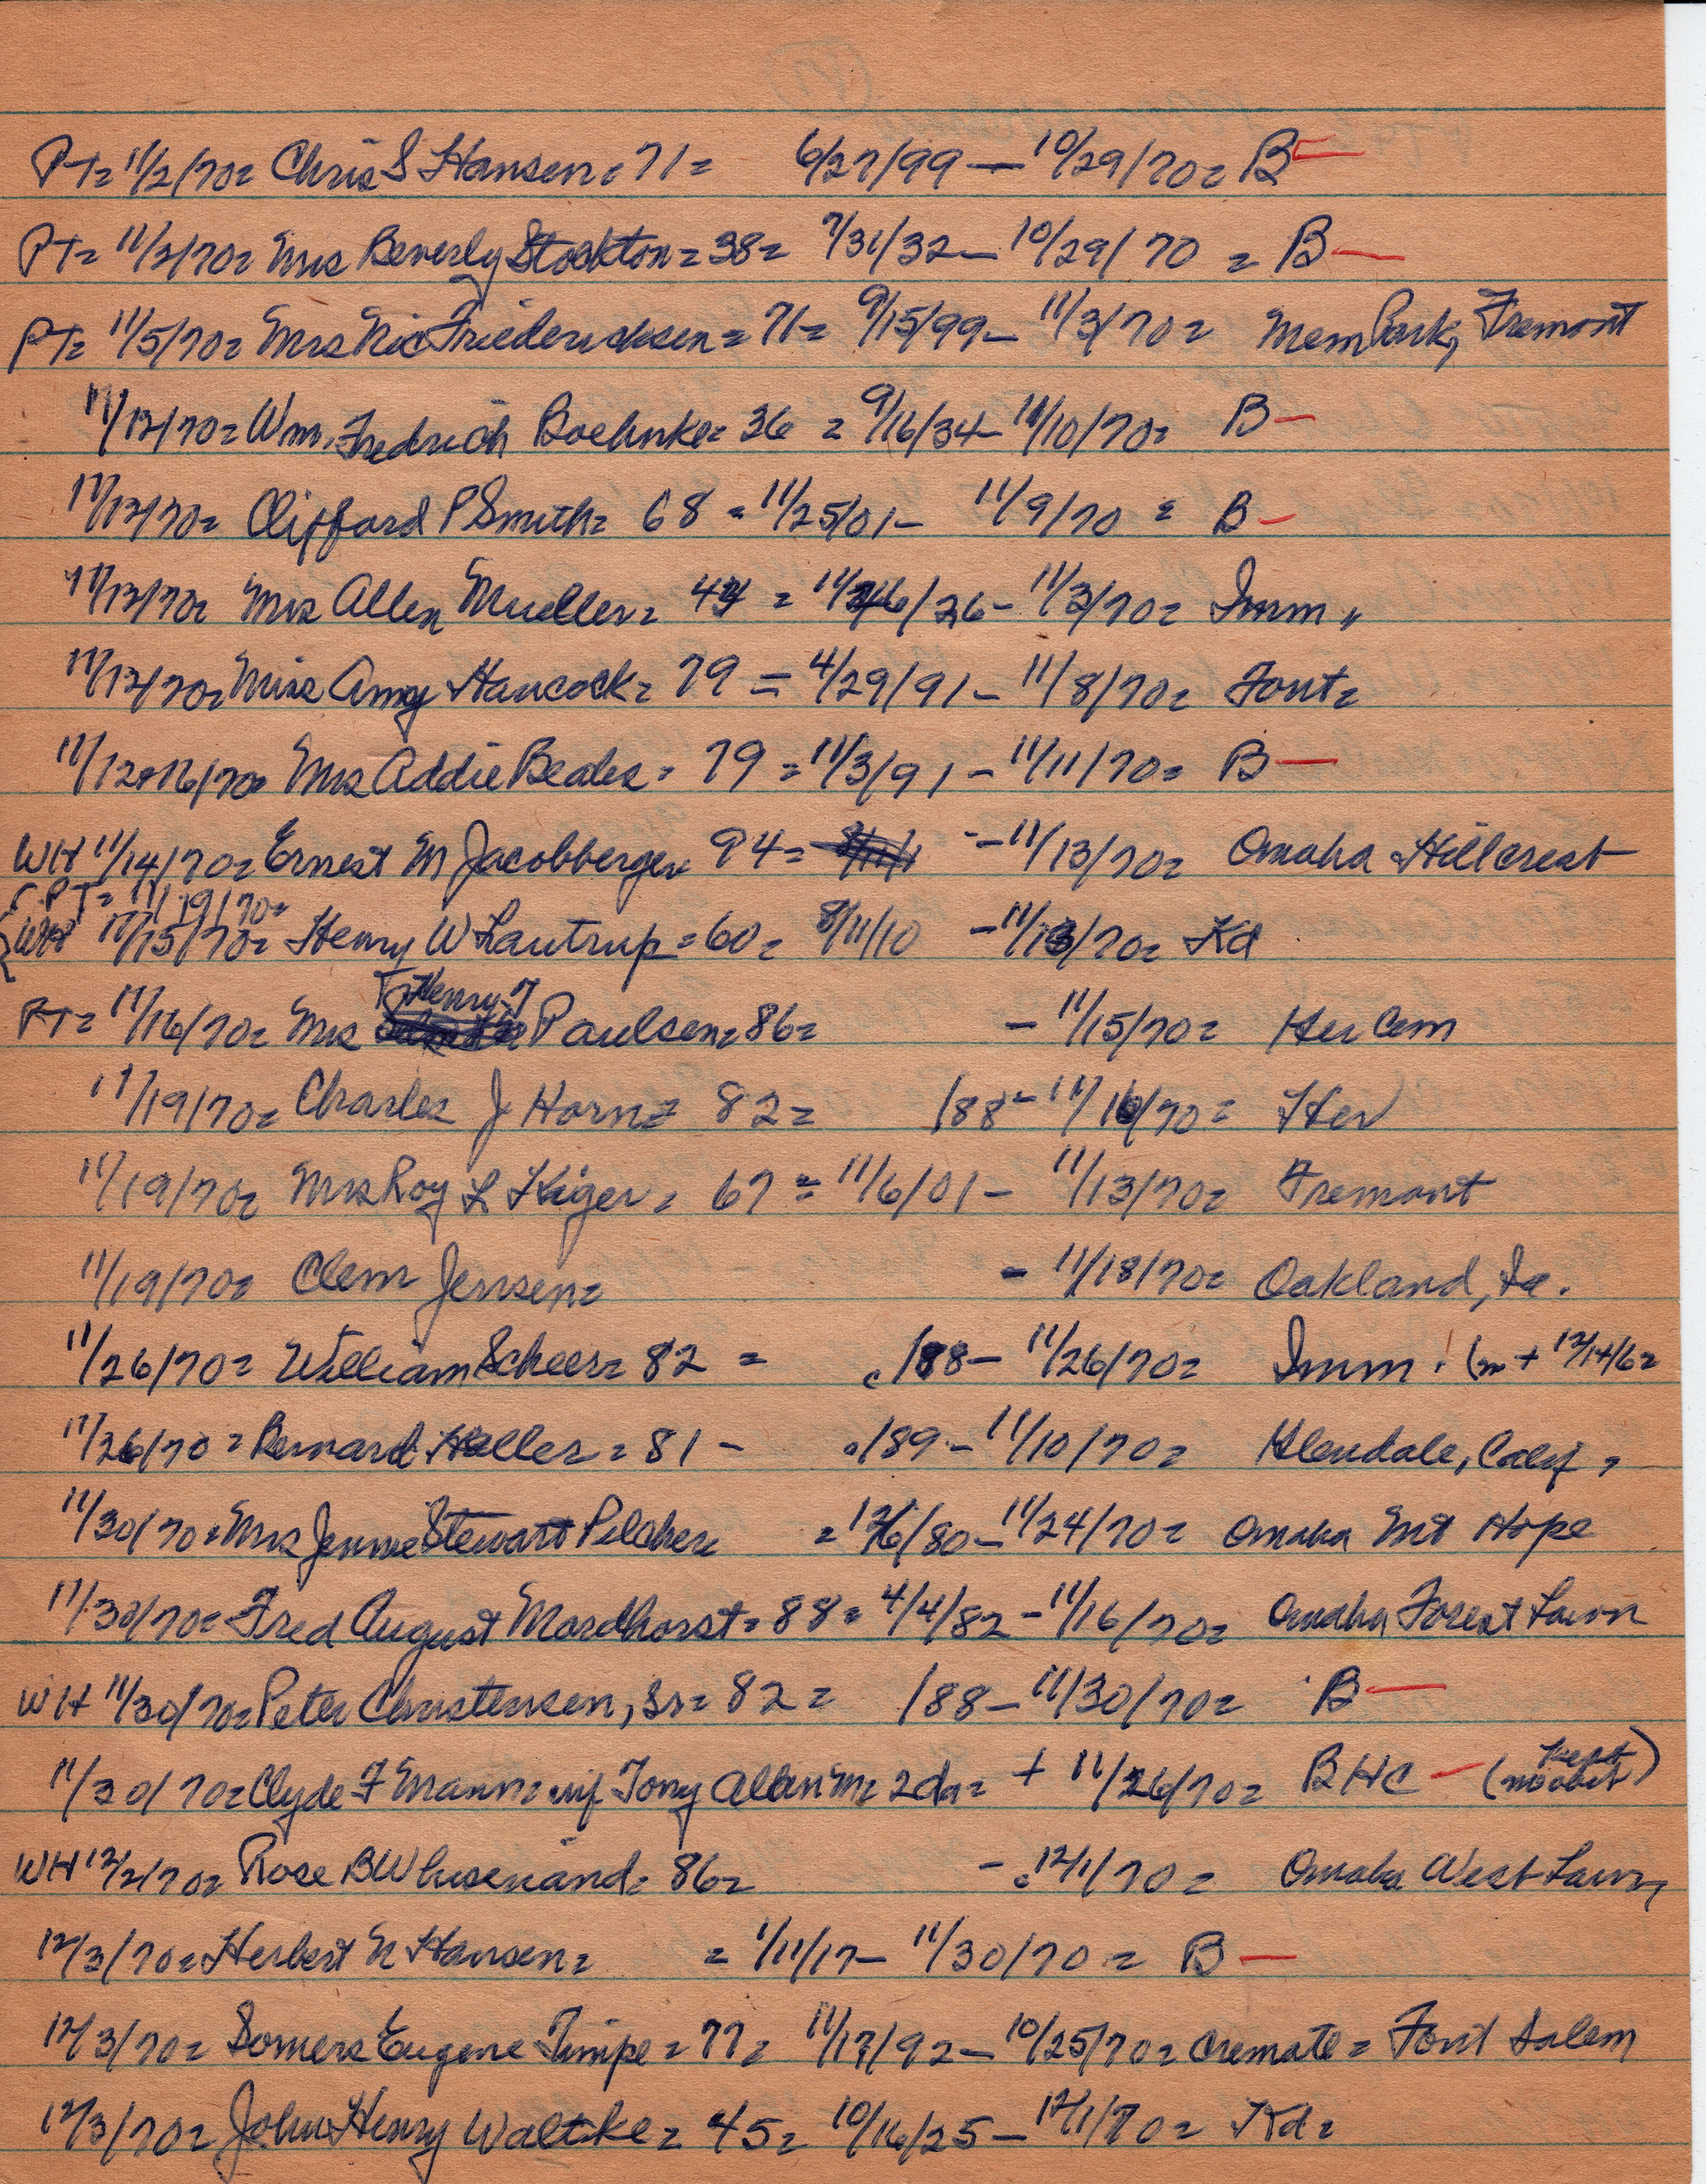 PT= 11/2/70= Chris S Hansen= 71= 6/27/99 — 10/29/70= B—
PT= 11/2/70= Mrs Beverly Stockton= 38= 7/31/32— 10/29/70 = B—
PT= 11/5/70= Mrs Nic Friedericksen= 71= 9/15/99— 11/3/70= Mem Park, Fremont
11/12/70= Wm. Fredrich Boehnke= 36 = 9/16/34— 11/10/70= B—
11/12/70= Clifford P Smith= 68 = 11/25/01— 11/9/70 = B—
11/13/70= Mrs Allen Mueller= = 11/ /26— 11/3/70= Imm.
11/12/70= Miss Amy Hancock= 79 = 4/29/91— 11/8/70= Font=
11/12+16/70= Mrs Addie Beales= 79 = 11/3/91— 11/11/70= B—
WH 11/14/70= Ernest M Jacobberger 94= — 11/13/70= Omaha Hillcrest
PT= 11/19/70=
WH 11/15/70= Henry W Lautrup= 60= 8/11/10 — 11/13/70= Kd
Henry
PT= 11/16/70= Mrs Paulsen= 86= — 11/15/70= Her Cem
11/19/70= Charles J Horn= 82= /88— 11/16/70= Her
11/19/70= Mrs Roy L Kiger= 67 = 11/6/01— 11/13/70= Fremont
11/19/70= Clem Jensen= — 11/18/70= Oakland, Ia.
11/26/70= William Scheer= 82 = /88— 11/26/70= Imm. (m + 12/14/6=
11/26/70= Bernard Haller= 81— /89— 11/10/70= Glendale, Calif,
11/30/70= Mrs Jennie Stewart Pilcher = 12/6/80— 11/24/70= Omaha Mt Hope
11/30/70= Fred August Mordhorst= 88= 4/4/82— 11/16/70= Omaha Forest Lawn
WH 11/30/70= Peter Christensen, Sr= 82= /88— 11/30/70= B—
11/30/70= Clyde F Mann= inf Tony Allen M= 2da= + 11/26/70= BHC — (kept no obit)
WH 12/2/70= Rose B Whisenand= 86= — 12/1/70= Omaha West Lawn
12/3/70= Herbert N Hansen= = 1/11/17— 11/30/70= B—
12/3/70= Somers Eugene Timpe= 77= 11/17/92— 10/25/70= Cremate= Font Salem
12/3/70= John Henry Waltke= 45= 10/16/25— 12/1/70= Kd=